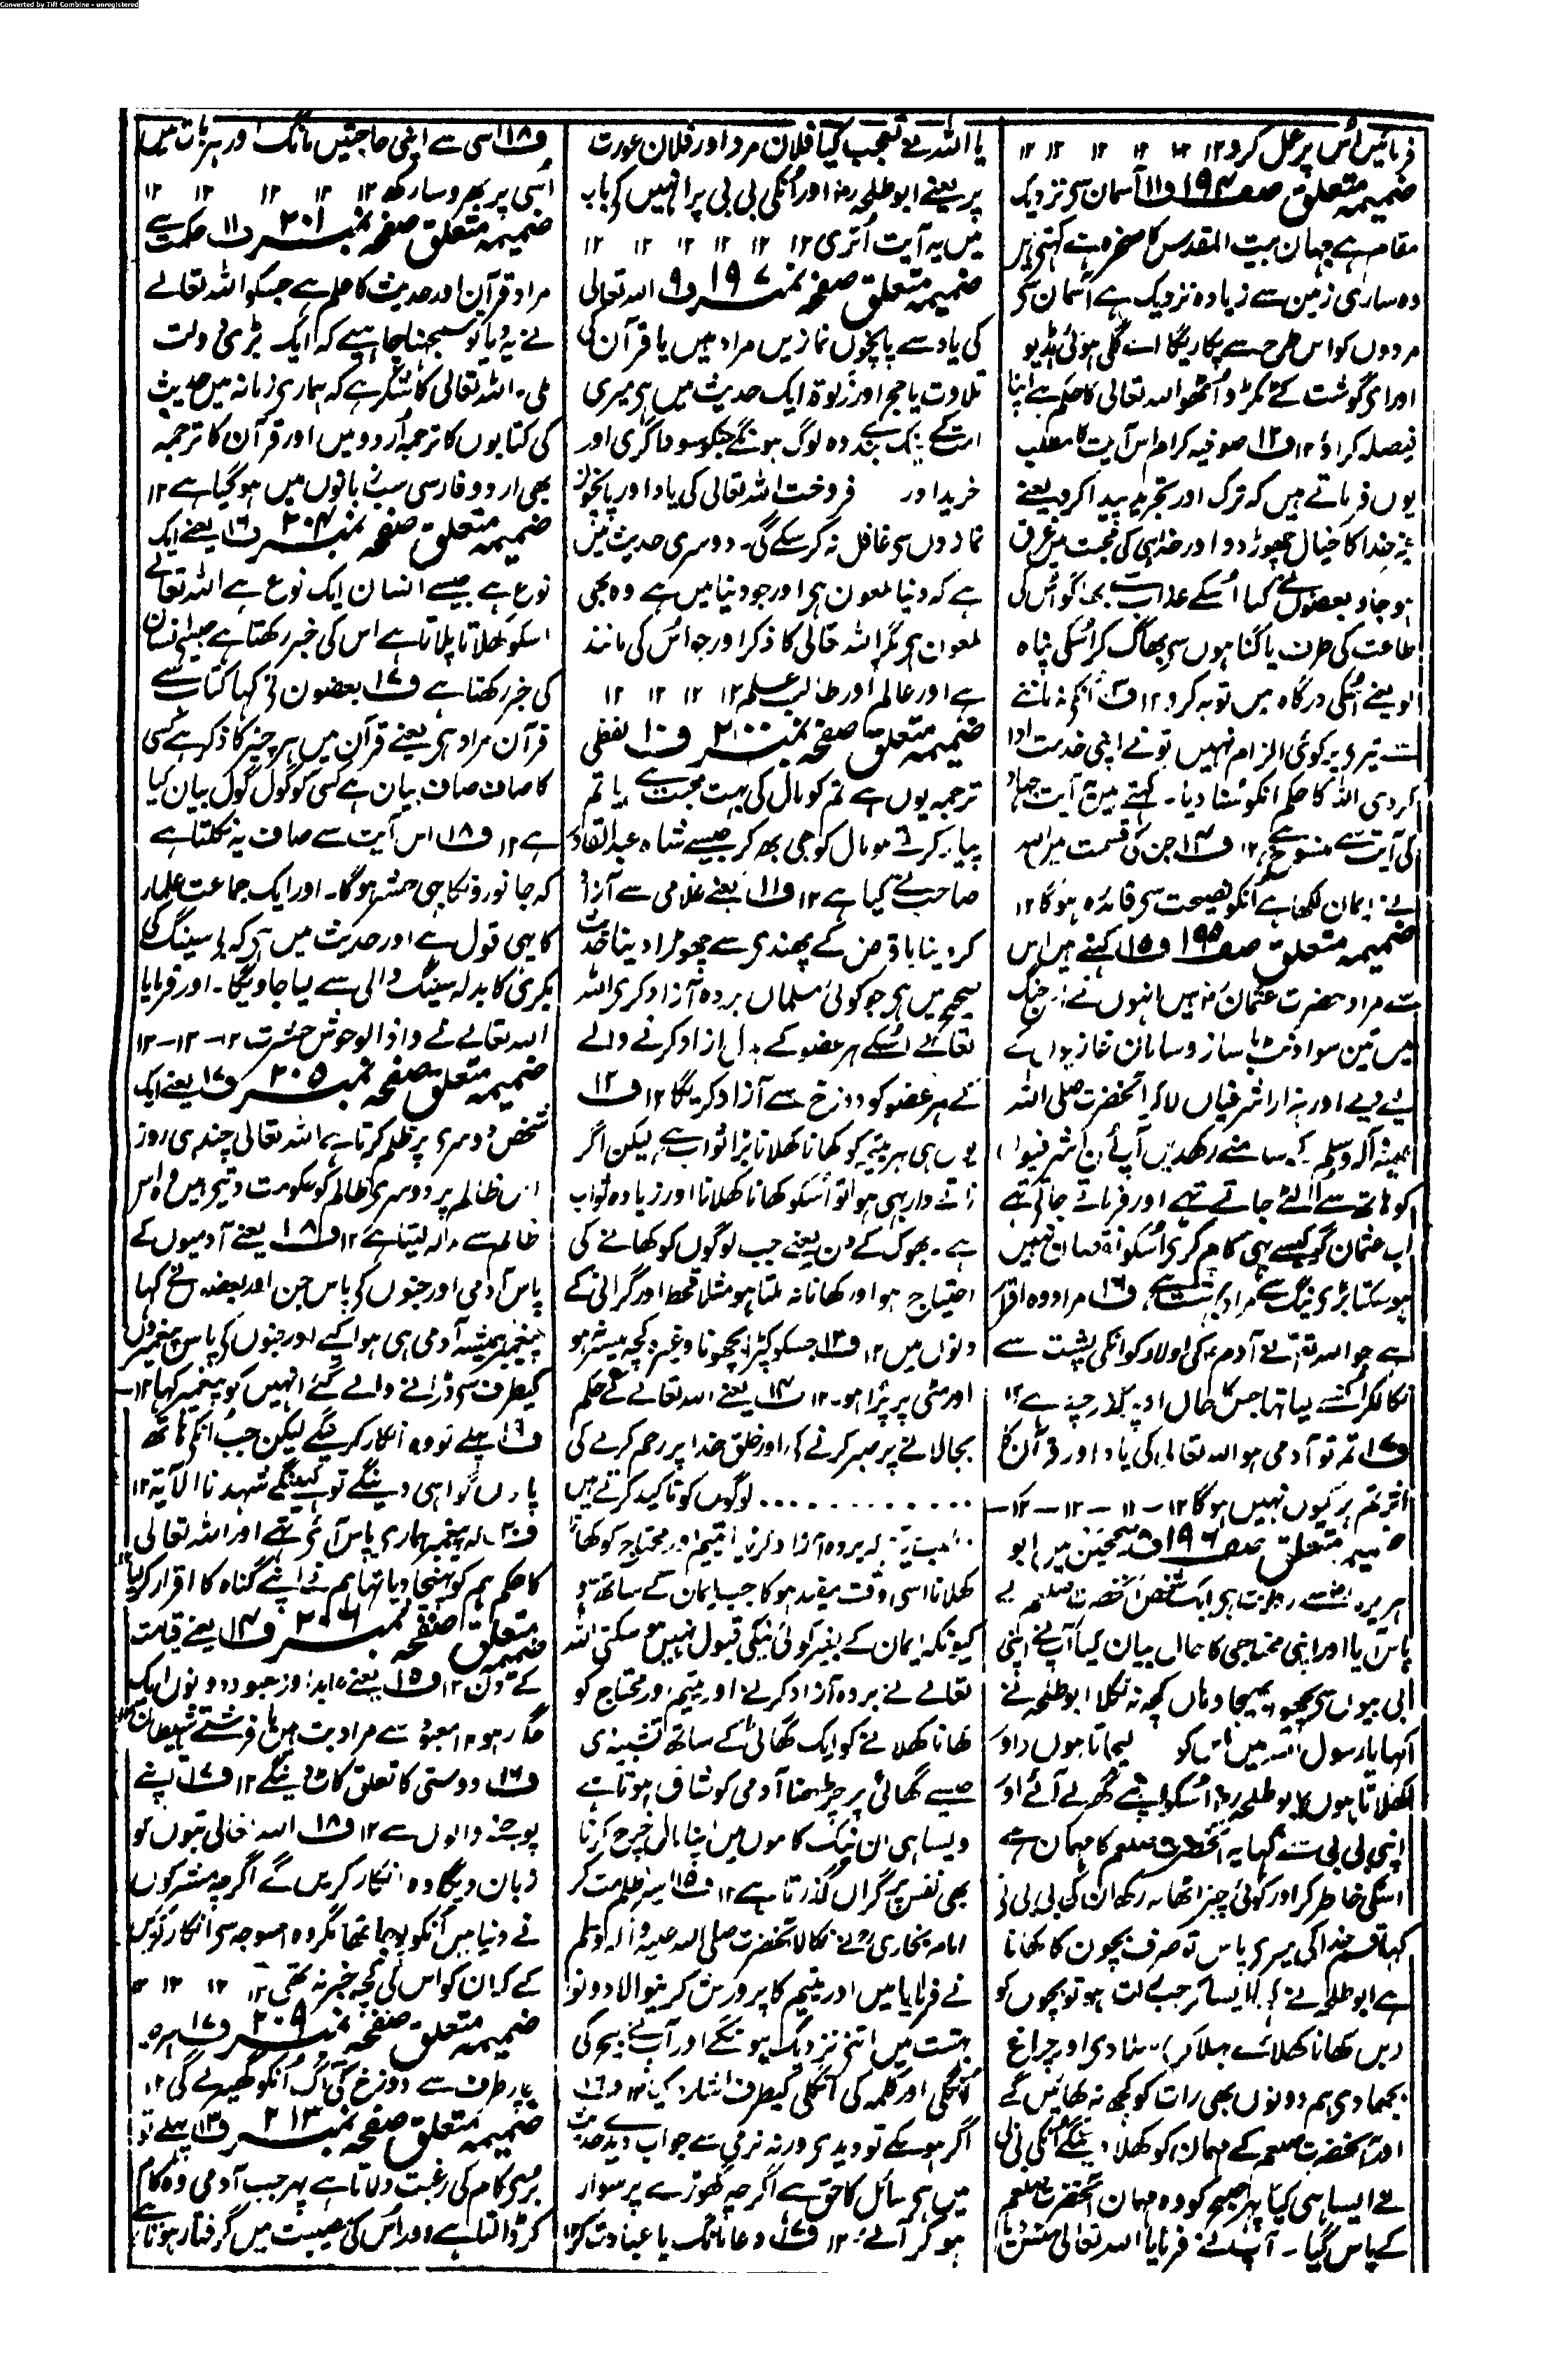 Converted by Tiff Combine - unregistered
فرمائیں اُس پر عمل کرو ۱۲ ۱۲ ۱۲ ۱۲ ۱۲ ۱۲
ضمیمہ متعلق صفہ ۱۹۴ ف۱۱ آسمان سے نزدیک
مقام ہے جہان بیت المقدس کا صخرہ ہے کہتے ہیں
وہ ساری زمین سے زیادہ نزدیک ہے آسمان سے
مردوں کو اس طرح سے پکاریگا اے گلی ہوئی ہڈیو
اور اے گوشت کے ٹکڑو اُٹھو اللہ تعالی کا حکم ہے اپنا
فیصلہ کراؤ ۱۲ ف۱۲ صوفیہ کرام اس آیت کا مطلب
یوں فرماتے ہیں کہ ترک اور تجرید پیدا کرو یعنے
غیر خدا کا خیال چھوڑ دو اور خدا ہی کی محبت میں غرق
ہو جاو بعضوں نے کہا اُسکے عذاب سے بھاگو اُس کی
طاعت کی طرف یا گناہوں سے بھاگ کر اُسکی پناہ
لو یعنے اُسکی درگاہ میں توبہ کرو ۱۲ ف انکے نہ ماننے
سے تیرے پر کوئی الزام نہیں تو نے اپنی خدمت ادا
کر دی اللہ کا حکم انکو سُنا دیا۔ کہتے ہیں یہ آیت جہاد
کی آیت سے منسوخ ہے ۱۲ ف۱۴ جن کی قسمت میں اللہ
نے ایمان لکھا ہے اُنکو نصیحت سے فائدہ ہوگا ۱۲
ضمیمہ متعلق صفہ ۱۹۵ ف۱۵ کہتے ہیں اس
سے مراد حضرت عثمانؓ ہیں انہوں نے جنگ
میں تین سو اونٹ با ساز و سامان غازیوں کے
لیے دیے اور ہزار اشرفیاں لا کر آنحضرت صلی اللہ
علیہ وآلہ وسلم کے سامنے رکھدیں آپ اُن اشرفیوں
کو ہاتھ سے اُلٹے جاتے تھے اور فرماتے جاتے تھے
اب عثمان کو کیسے ہی کام کرے اُسکو نقصان نہیں
ہو سکتا بڑی نیک سے مراد بہشت ہے ف۱۶ مراد وہ اقرار
ہے جو اللہ تعالٰے نے آدم کی اولاد کو انکی پشت سے
نکالکر اُنسے لیا تھا جس کا حال اوپر گذر چکا ہے ۱۲
ف۱۷ تم تو آدمی ہو اللہ تعالٰی کی یاد اور قرآن کا
اثر تم پر کیوں نہیں ہوگا ۱۲ - ۱۲ - ۱۱ - ۱۲ - ۱۲
ضمیمہ متعلق صفہ ۱۹۶ ف صحیحین میں ابو
ہریرہؓ سے روایت ہے ایک شخص آنحضرت صلعم کے
پاس آیا اور اپنی محتاجی کا حال بیان کیا آپ نے اپنی
بی بیوں سے کچھ بھیجا وہاں کچھ نہ نکلا ابو طلحہ نے
کہا یا رسول اللہ میں اس کو لیجاتا ہوں اور
کھلاتا ہوں ابو طلحہ اُسکو اپنے گھر لے آئے اور
اپنی بی بی سے کہا یہ آنحضرت صلعم کا مہمان ہے
اسکی خاطر کر اور کوئی چیز اٹھا نہ رکھ ان کی بی بی نے
کہا قسم خدا کی میرے پاس تو صرف بچون کا کھانا
ہے ابو طلحہ نے کہا ایسا کر جب رات ہو تو بچوں کو
بے کھانا کھلائے بہلا کر سلا دے اور چراغ
بجھا دے ہم دونوں بھی رات کو کچھ نہ کھائیں گے
اور آنحضرت صلعم کے مہمان کو کھلا دینگے اُنکی بی بی
نے ایسا ہی کیا پھر صبح کو وہ مہمان آنحضرت صلعم
کے پاس گیا۔ آپ نے فرمایا اللہ تعالی ہنسا
یا اللہ نے تعجب کیا فلان مرد اور فلان عورت
پر یعنے ابو طلحہ اور اُنکی بی بی پر انہیں کے باب
میں یہ آیت اُتری ۱۲ ۱۲ ۱۲ ۱۲ ۱۲ ۱۲
ضمیمہ متعلق صفحہ نمبر ۱۹۷ ف۹ اللہ تعالی
کی یاد سے پانچوں نمازیں مراد ہیں یا قرآن کی
تلاوت یا حج اور زکوۃ ایک حدیث میں ہے میری
امت کے نیک بندے وہ لوگ ہونگے جنکو سوداگری اور
خرید اور فروخت اللہ تعالی کی یاد اور پانچوں
نمازوں سے غافل نہ کر سکے گی۔ دوسری حدیث میں
ہے کہ دنیا ملعون ہے اور جو دنیا میں ہے وہ بھی
ملعون ہے مگر اللہ تعالی کا ذکر اور جو اُس کی مانند
ہے اور عالم اور طالب علم ۱۲ ۱۲ ۱۲ ۱۲
ضمیمہ متعلق صفحہ نمبر ۲۰۰ ف۱۰ لفظی
ترجمہ یوں ہے تم کو مال کی بہت محبت ہے یا تم
پیار کرتے ہو مال کو جی بھر کر جیسے شاہ عبد القادر
صاحب نے کیا ہے ۱۲ ف۱۱ یعنے غلامی سے آزاد
کر دینا یا قرض کے پھندے سے چھوڑا دینا حدیث
صحیح میں ہے جو کوئی مسلمان بردہ آزاد کرے اللہ
تعالٰے اُسکے ہر عضو کے بدل ازاد کرنے والے
کے ہر عضو کو دوزخ سے آزاد کریگا ۱۲ ف۱۲
یوں ہی ہر یتیم کو کھانا کھلانا بڑا ثواب ہے لیکن اگر
ناتے دار بھی ہو تو اُسکو کھانا کھلانا اور زیادہ ثواب
ہے۔ بھوک کے دن یعنے جب لوگوں کو کھانے کی
احتیاج ہو اور کھانا نہ ملتا ہو مثلا قحط اور گرانی کے
دنوں میں ۱۲ ف۱۳ جسکو کپڑا بچھونا وغیرہ کچھ میسر نہ ہو
اور مٹی پر پڑا ہو۔ ۱۲ ف۱۴ یعنے اللہ تعالے کے حکم
بجا لانے پر صبر کرنے کی اور خلق خدا پر رحم کرنے کی
لوگوں کو تاکید کرتے ہیں
کہ بردہ آزاد کرنا یتیم اور محتاج کو کھانا
کھلانا اسی وقت مفید ہوگا جب ایمان کے ساتھ ہو
کیونکہ ایمان کے بغیر کوئی نیکی قبول نہیں ہو سکتی اللہ
تعالے نے بردہ آزاد کرنے اور یتیم اور محتاج کو
کھانا کھلانے کو ایک گھاٹی کے ساتھ تشبیہ دی
جیسے گھاٹی پر چڑھنا آدمی کو شاق ہوتا ہے
ویسا ہی ان نیک کاموں میں اپنا مال خرچ کرنا
بھی نفس پر گراں گذرتا ہے ۱۲ ف۱۵ یعنے ظلم مت کر
امام بخاری نے نکالا آنحضرت صلی اللہ علیہ وآلہ وسلم
نے فرمایا میں اور یتیم کا پرورش کرنیوالا دونوں
بہشت میں اتنے نزدیک ہونگے اور آپ نے بیچ کی
اُنگلی اور کلمہ کی اُنگلی کیطرف اشارہ کیا ۱۲ ف۱۶
اگر ہو سکے تو دیدے ورنہ نرمی سے جواب دیدے حدیث
میں ہے سائل کا حق ہے اگرچہ گھوڑے پر سوار
ہو کر آئے۔ ۱۲ ف۱۷ دعا مانگ یا عبادت کر ۱۲
ف۱۸ اسی سے اپنی حاجتیں مانگ اور ہر بات میں
اُسی پر بھروسا رکھ ۱۲ ۱۲ ۱۲ ۱۲ ۱۲
ضمیمہ متعلق صفحہ نمبر ۲۰۱ ف۱۱ حکمت سے
مراد قرآن اور حدیث کا علم ہے جسکو اللہ تعالے
نے یہ دیا تو سمجھنا چاہیے کہ ایک بڑی دولت
ملی۔ اللہ تعالی کا شکر ہے کہ ہماری زمانہ میں حدیث
کی کتابوں کا ترجمہ اُردو میں اور قرآن کا ترجمہ
بھی اردو فارسی سب زبانوں میں ہو گیا ہے ۱۲
ضمیمہ متعلق صفحہ نمبر ۲۰۴ ف۱۶ یعنے ایک
نوع ہے جیسے انسان ایک نوع ہے اللہ تعالٰے
اسکو کھلاتا پلاتا ہے اس کی خبر رکھتا ہے جیسے انسان
کی خبر رکھتا ہے ف۱۷ بعضون نے کہا کتاب سے
قرآن مراد ہے یعنے قرآن میں ہر چیز کا ذکر ہے کسی
کا صاف صاف بیان ہے کسی کو گول گول بیان کیا
ہے ۱۲ ف۱۸ اس آیت سے صاف یہ نکلتا ہے
کہ جانورونکا بھی حشر ہوگا۔ اور ایک جماعت علماء
کا یہی قول ہے اور حدیث میں ہے کہ بے سینگ کی
بکری کا بدلہ سینگ والی سے لیا جاویگا۔ اور فرمایا
اللہ تعالے نے واذا الوحوش حشرت ۱۲ - ۱۲ - ۱۲
ضمیمہ متعلق صفحہ نمبر ۲۰۵ ف۱۷ یعنے ایک
شخص دوسرے پر ظلم کرتا ہے اللہ تعالی چند ہی روز
اس ظالم پر دوسرے ظالم کو حکومت دیتے ہیں وہ اس
ظالم سے بدلہ لیتا ہے ۱۲ ف۱۸ یعنے آدمیوں کے
پاس آدمی اور جنوں کے پاس جن اور بعضوں نے کہا
پیغمبر ہمیشہ آدمی ہی ہوا کیے اور جنوں کے پاس پیغمبروں
کیطرف سے ڈرانے والے گئے انہیں کو پیغمبر کہا ۱۲
ف۱۹ پہلے تو وہ انکار کریں گے لیکن جب اُنکے ہاتھ
پاؤں گواہی دینگے تو کہینگے شہدنا الآیۃ ۱۲
ف۲۰ کہ پیغمبر ہماری پاس آئے تھے اور اللہ تعالی
کا حکم ہم کو پہنچا دیا تھا ہم نے اپنے گناہ کا اقرار کر لیا
ضمیمہ متعلق صفحہ نمبر ۲۰۶ ف۱۴ یعنے قیامت
کے دن ۱۲ ف۱۵ یعنے عابد اور معبود دونوں ایک
جگہ رہو ۱۲ معبود سے مراد بت ہیں یا فرشتے شیطان
ف۱۶ دوستی کا تعلق کاٹ دینگے ۱۲ ف۱۷ اپنے
پوجنے والوں سے ۱۲ ف۱۸ اللہ تعالی بتوں کو
زبان دیگا وہ انکار کریں گے اگرچہ مشرکوں
نے دنیا میں اُنکو پوجا تھا مگر وہ اسوجہ سے انکار کریں
گے کہ ان کو اس کی کچھ خبر نہ تھی ۱۲ ۱۲ ۱۲
ضمیمہ متعلق صفحہ نمبر ۲۰۹ ف۱۷ ہر
چار طرف سے دوزخ کی آگ اُنکو گھیرے گی ۱۲
ضمیمہ متعلق صفحہ نمبر ۲۱۳ ف۱۳ پہلے تو
برے کام کی رغبت دلاتا ہے پھر جب آدمی وہ کام
کر ڈالتا ہے اور اُس کی مصیبت میں گرفتار ہوتا ہے